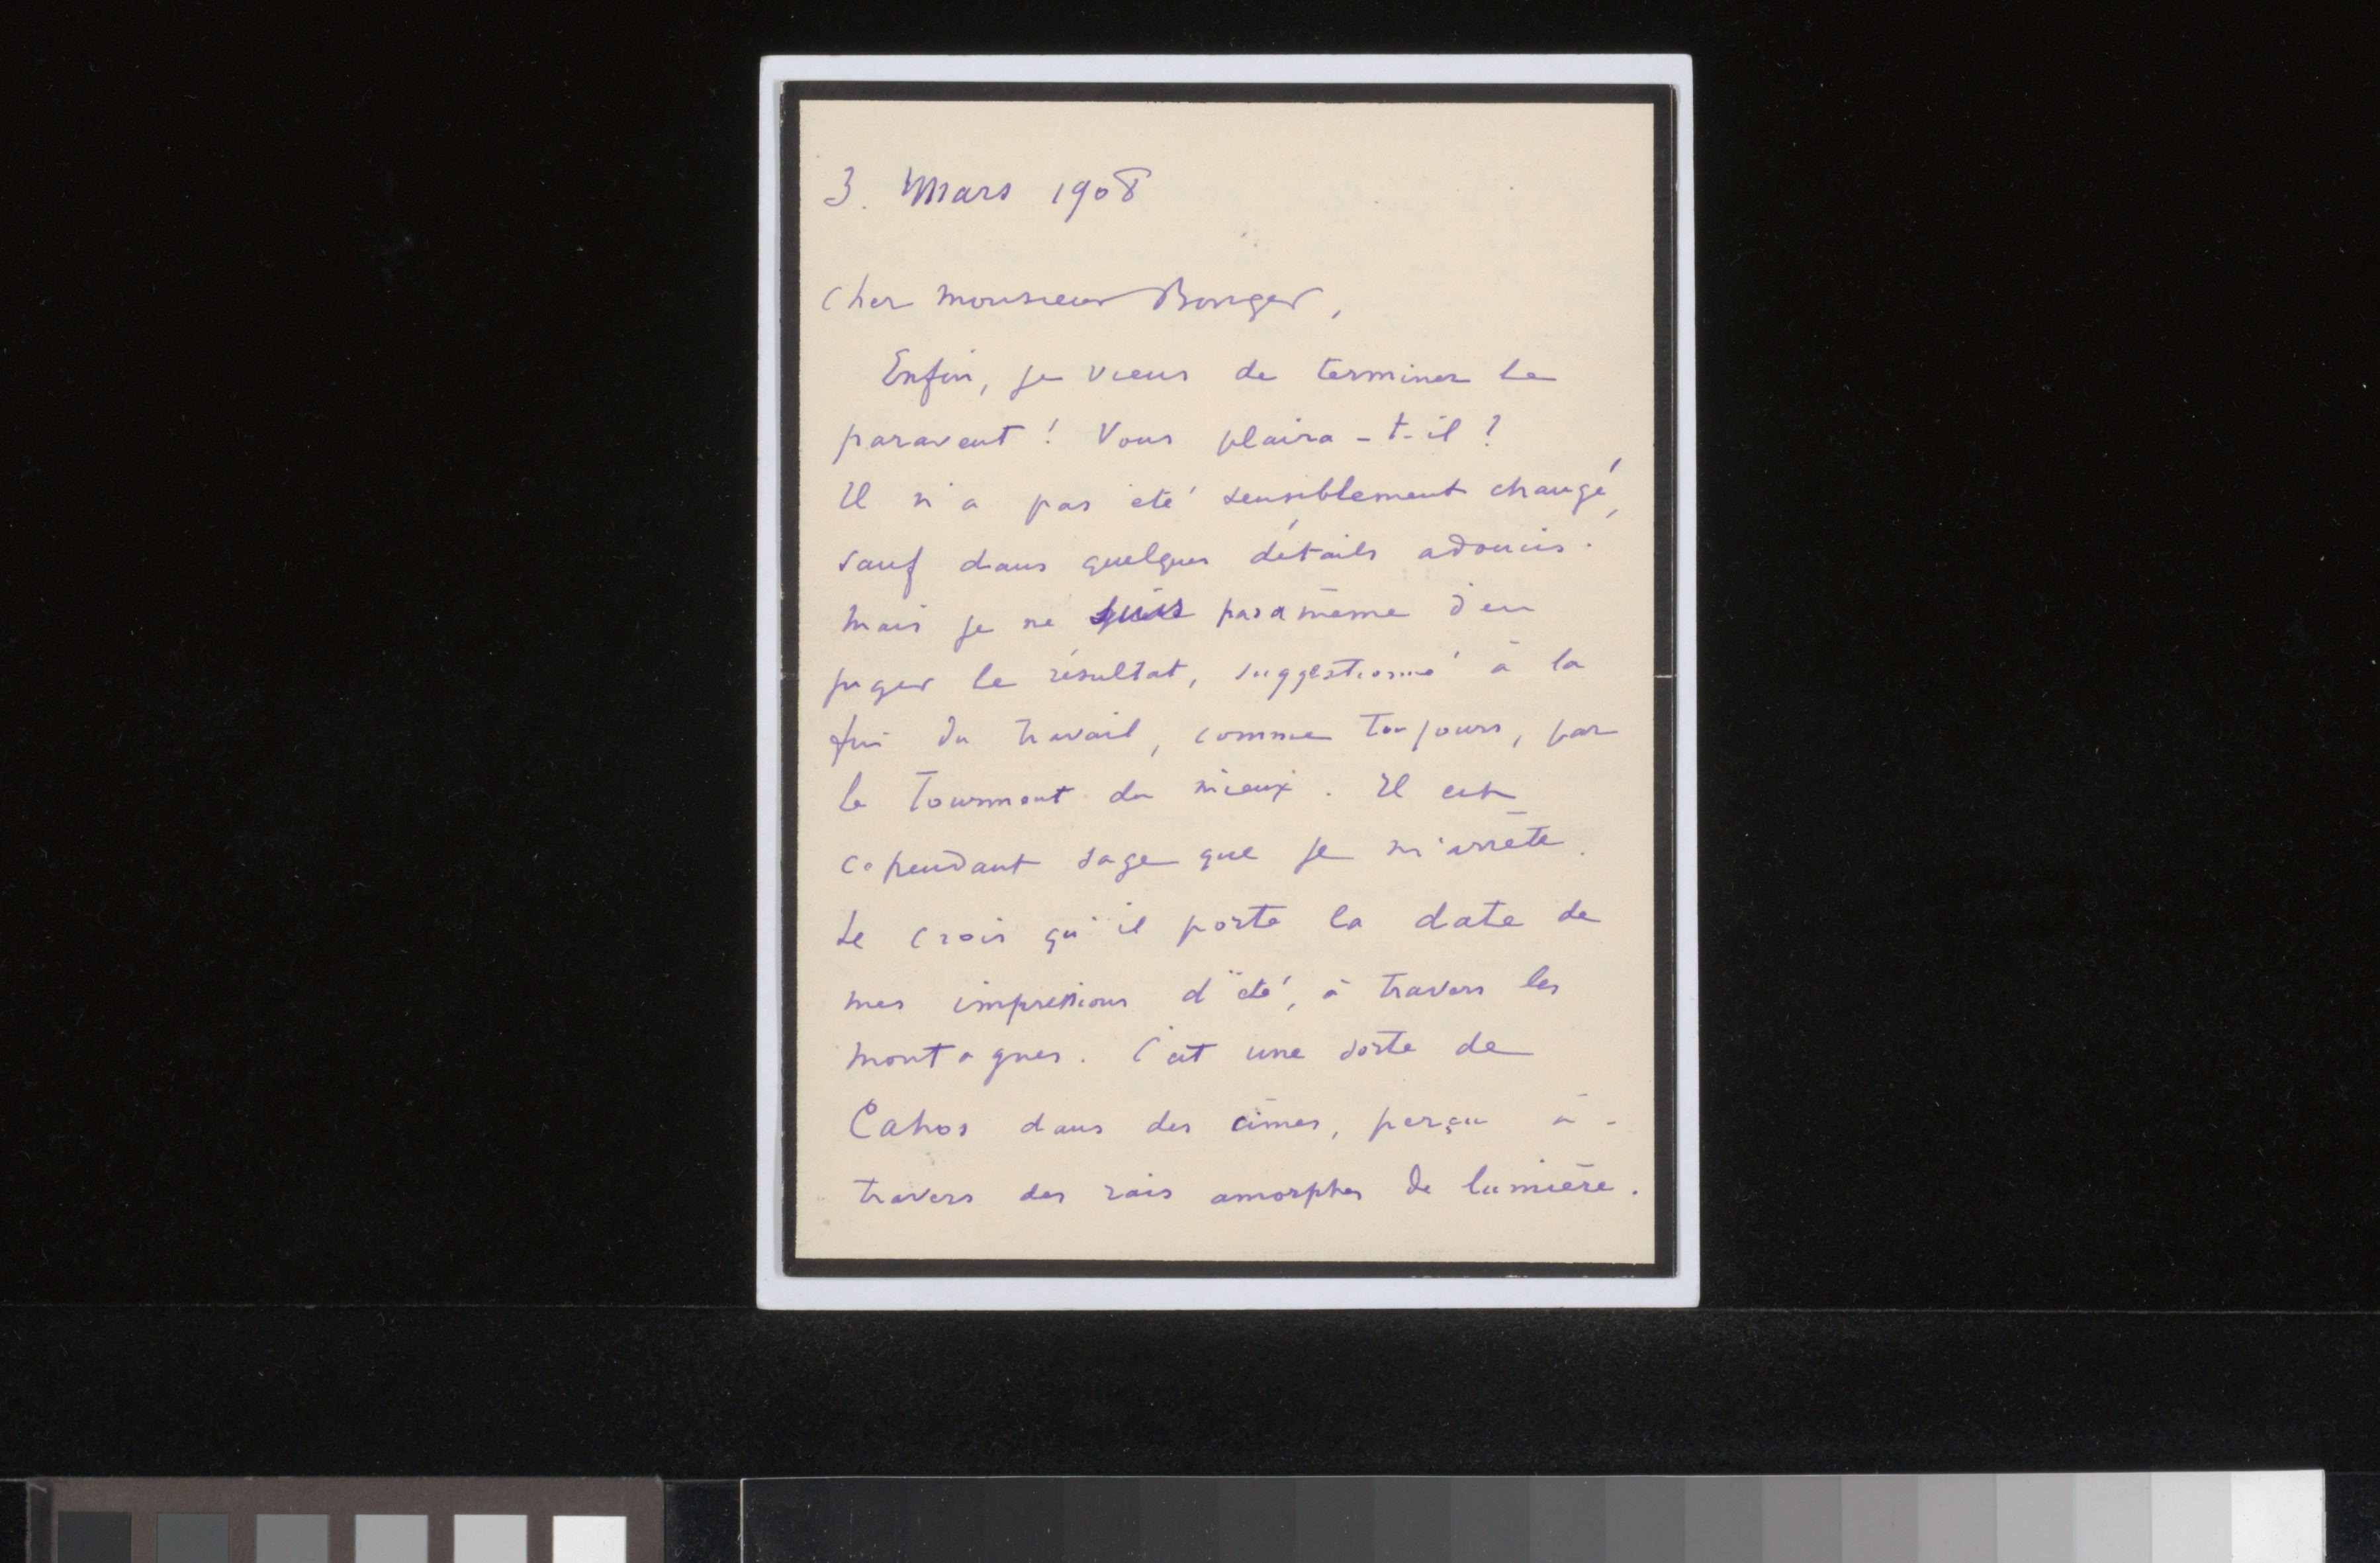 3. Mars 1908
Cher monsieur Bonger,
Enfin, je viens de terminer le
paravent ! Vous plaira-t-il ?
Il n'a pas été sensiblement changé,
sauf dans quelques détails adoucis.
Mais je ne suis pas a même d'en
juger le résultat, suggestionné à la
fin du travail, comme toujours, par
le Tourment du mieux. Il est
cependant sage que je m'arrête.
Je crois qu'il porte la date de
mes impressions d'été, à travers les
montagnes. C'est une sorte de
Cahos dans des cimes, perçu à-
travers des rais amorphes de lumière.